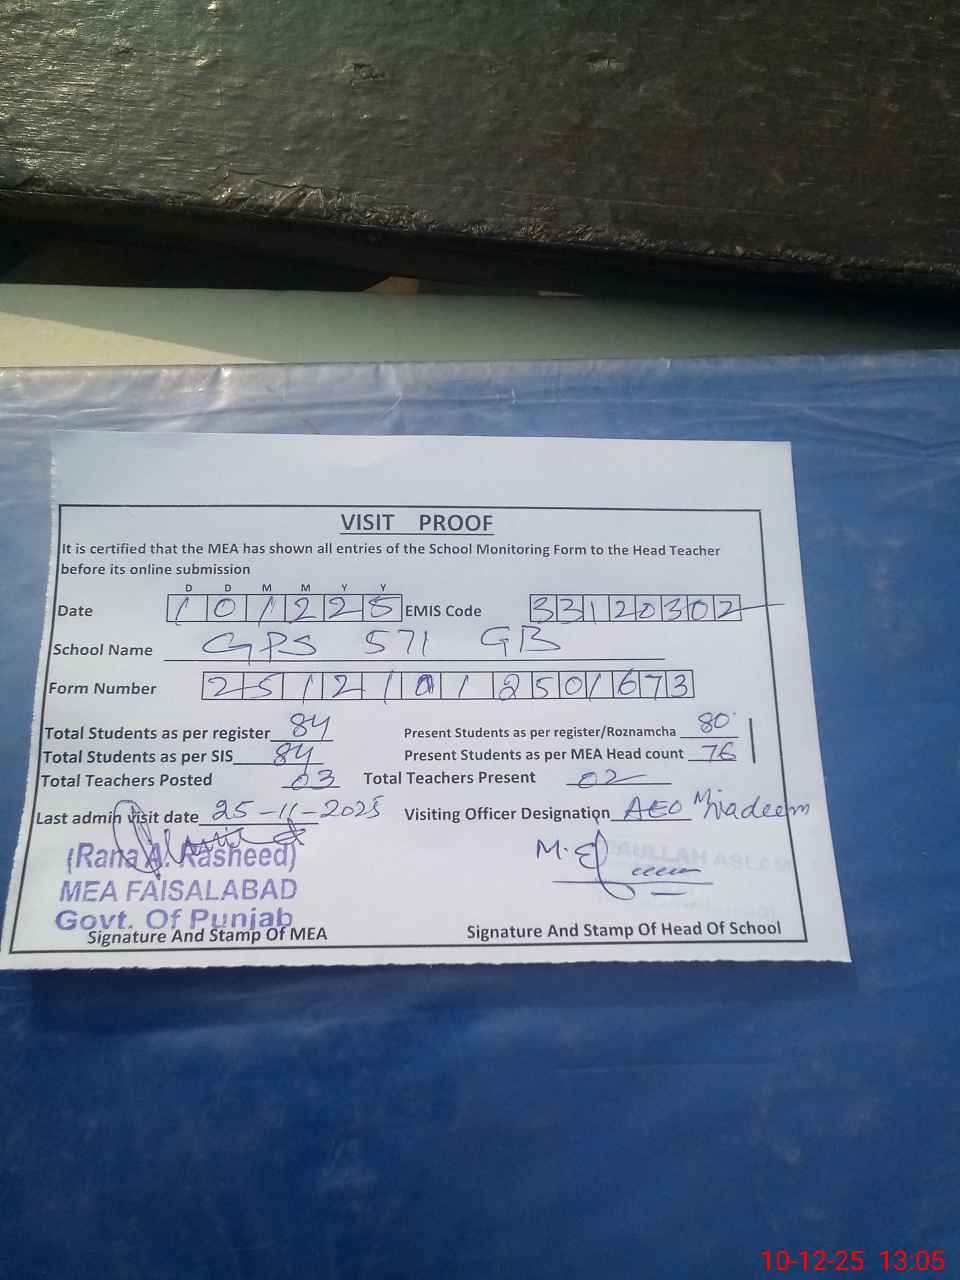 VISIT PROOF
It is certified that the MEA has shown all entries of the School Monitoring Form to the Head Teacher
before its online submission
D D M M Y Y
Date 101225 EMIS Code 33120302
School Name GPS 571 GB
Form Number 25121012501673
Total Students as per register 84 Present Students as per register/Roznamcha 80
Total Students as per SIS 84 Present Students as per MEA Head count 76
Total Teachers Posted 03 Total Teachers Present 02
Last admin visit date 25-11-2025 Visiting Officer Designation AEO
(Rana A. Rasheed)
MEA FAISALABAD
Govt. Of Punjab
Signature And Stamp Of MEA Signature And Stamp Of Head Of School
10-12-25 13:05